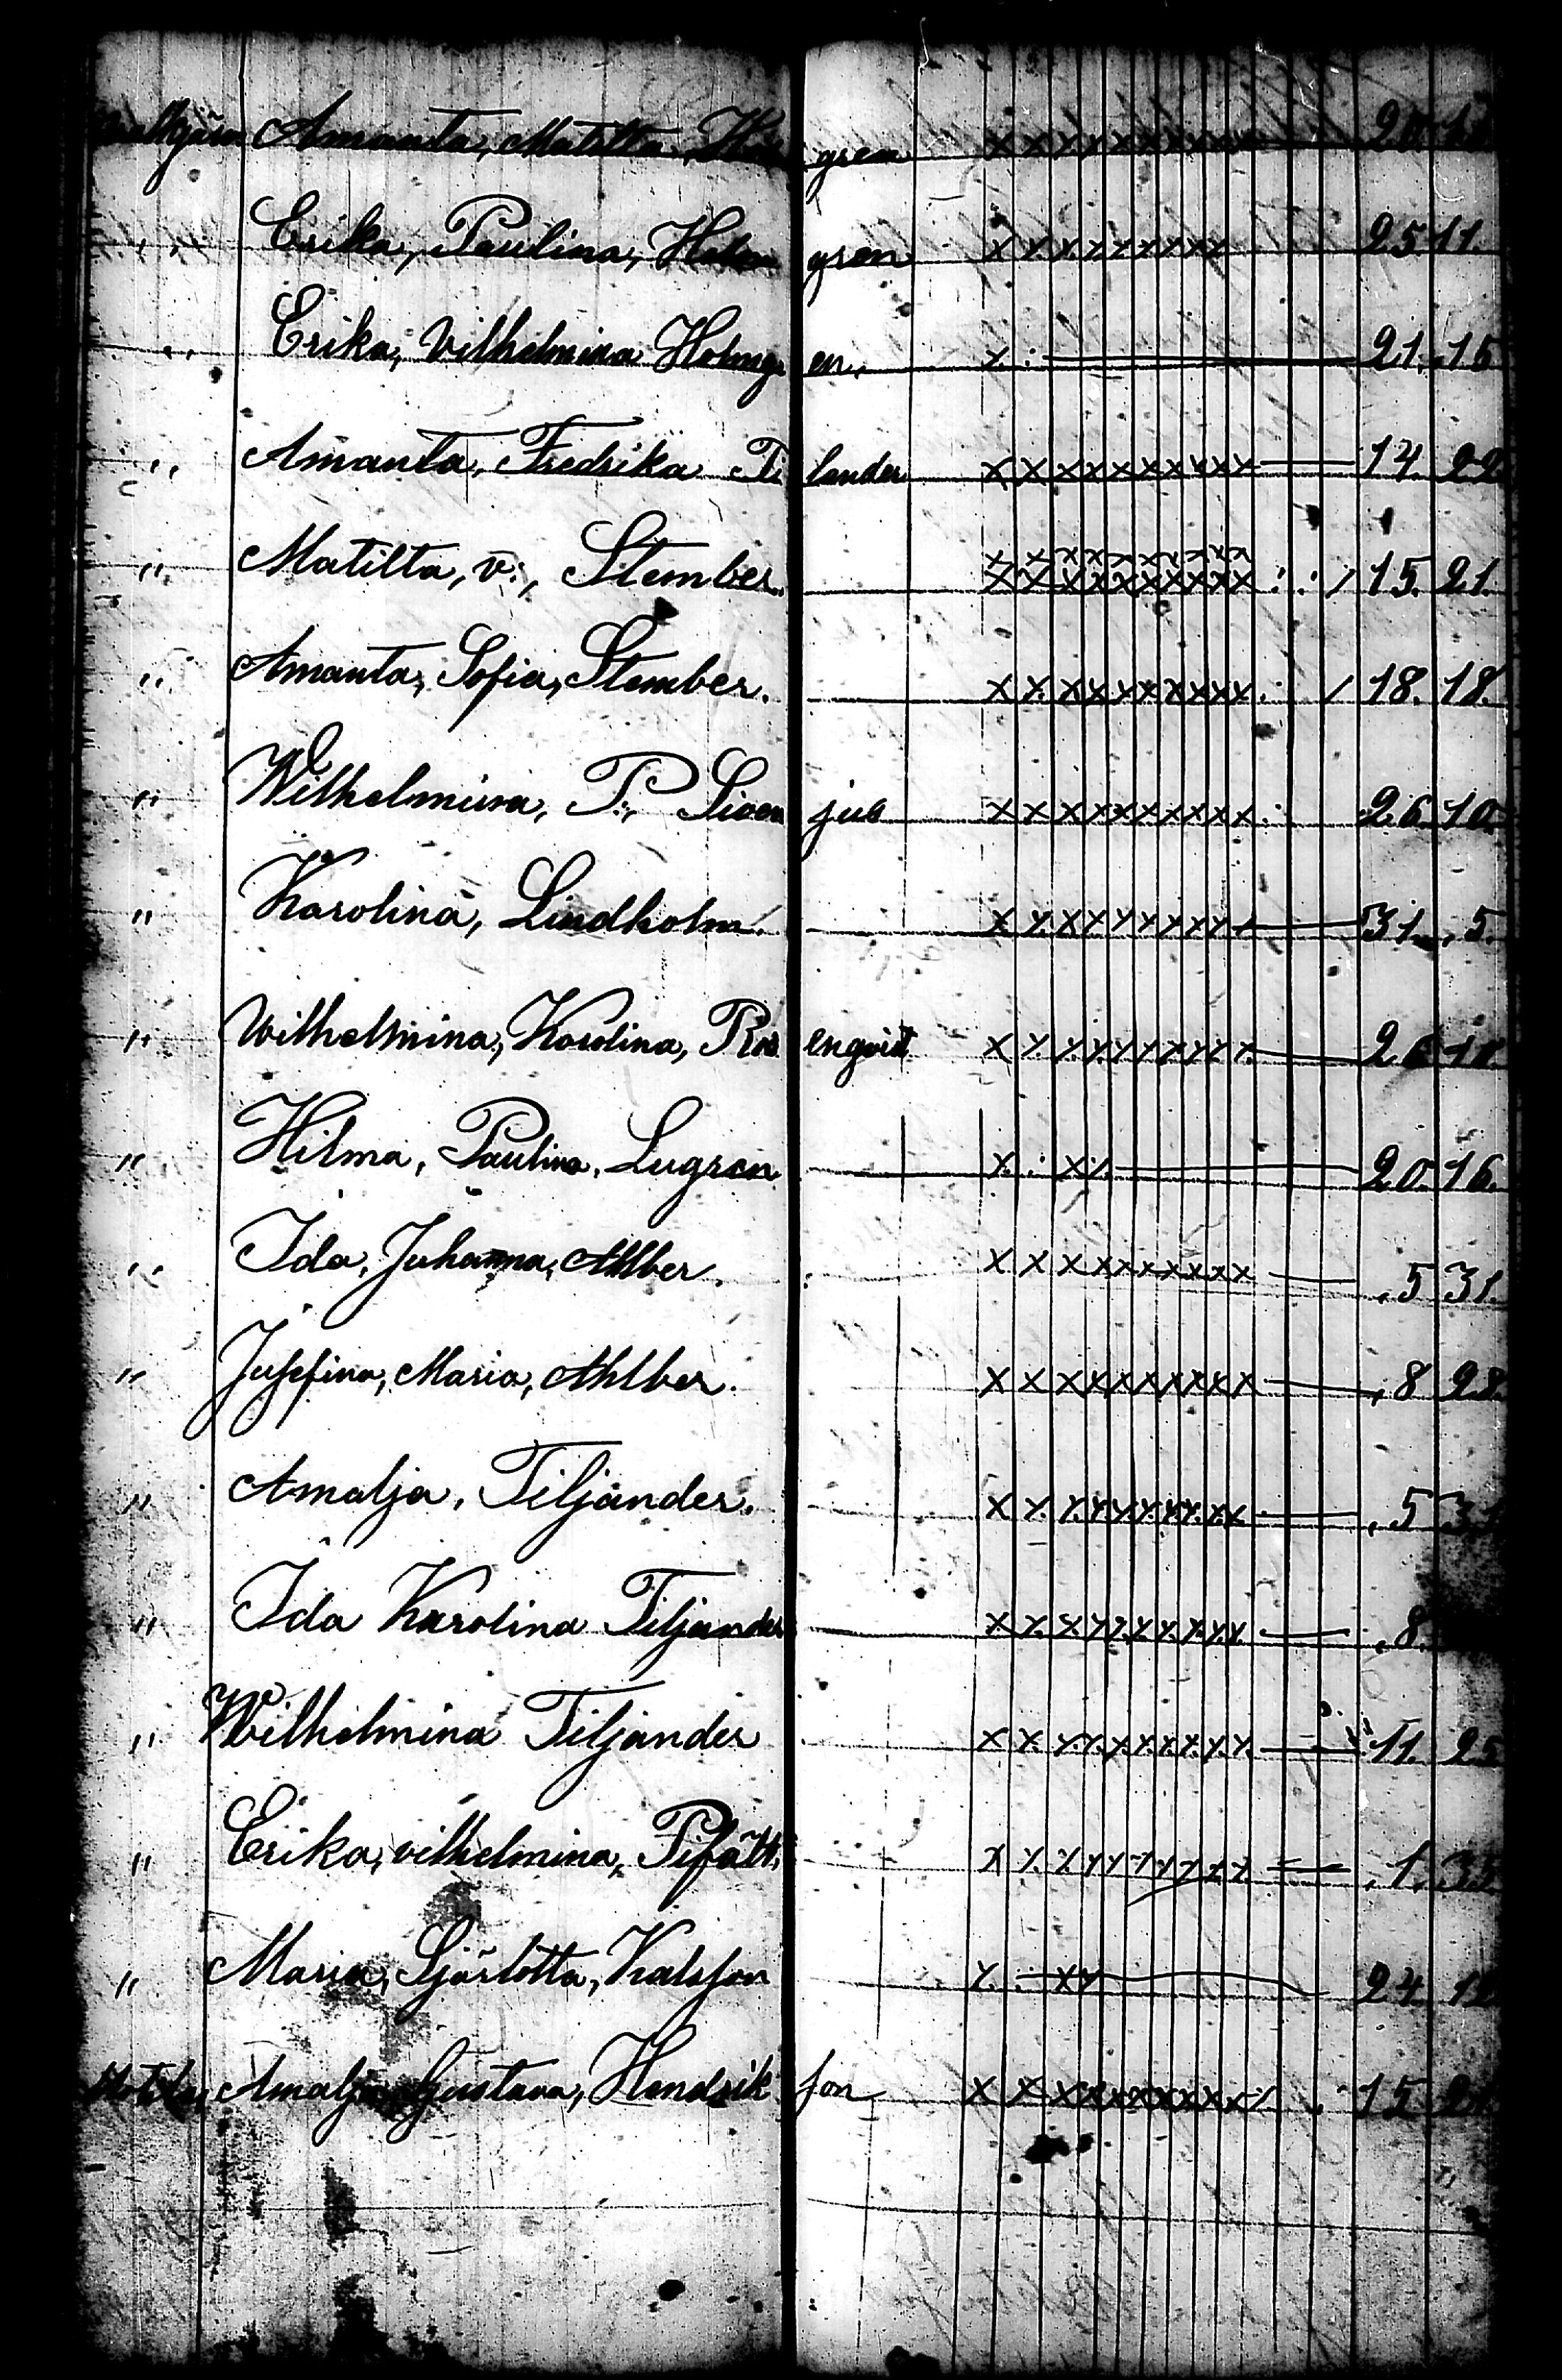 Amanta, Matilta, Holmgren xxxxxxxxxx 20
" Erika, Paulina, Holmgren xxxxxxxxx 25 11.
" Erika, Vilhelmina Holmgren. x 21. 15
" Amanta, Fredrika Tilander xxxxxxxxxx 14. 22
" Matilta, v:, Stember. xxxxxxxxxx xxxxxxxxxx / 15. 21.
" Amanta, Sofia, Stember. xxxxxxxxxx / 18. 18.
" Wilhelmina, P:, xxxxxxxxxx 26. 10.
" Karolina, Lindholm. xxxxxxxxxx 31. 5.
" Wilhelmina, Karolina, Rosenqvist xxxxxxxxxx 26
" Hilma, Paulina, Lugren x xx 20. 16.
" Ida, Juhanna, Ahlber. xxxxxxxxxx 5 31.
" Jusefina, Maria, Ahlber. xxxxxxxxxx 8 28.
" Amalja, Tiljander. xxxxxxxxxx 5 31
" Ida Karolina Tiljander xxxxxxxxxx 8.
" Wilhelmina Tiljander xxxxxxxxxx 11. 25
" Erika, vilhelmina, xxxxxxxxxx 1. 35
" Maria, Sjarlotta, Kalsson x xx 24 12
Amalja Gustava, Hendrikson xxxxxxxxxxx 15 21